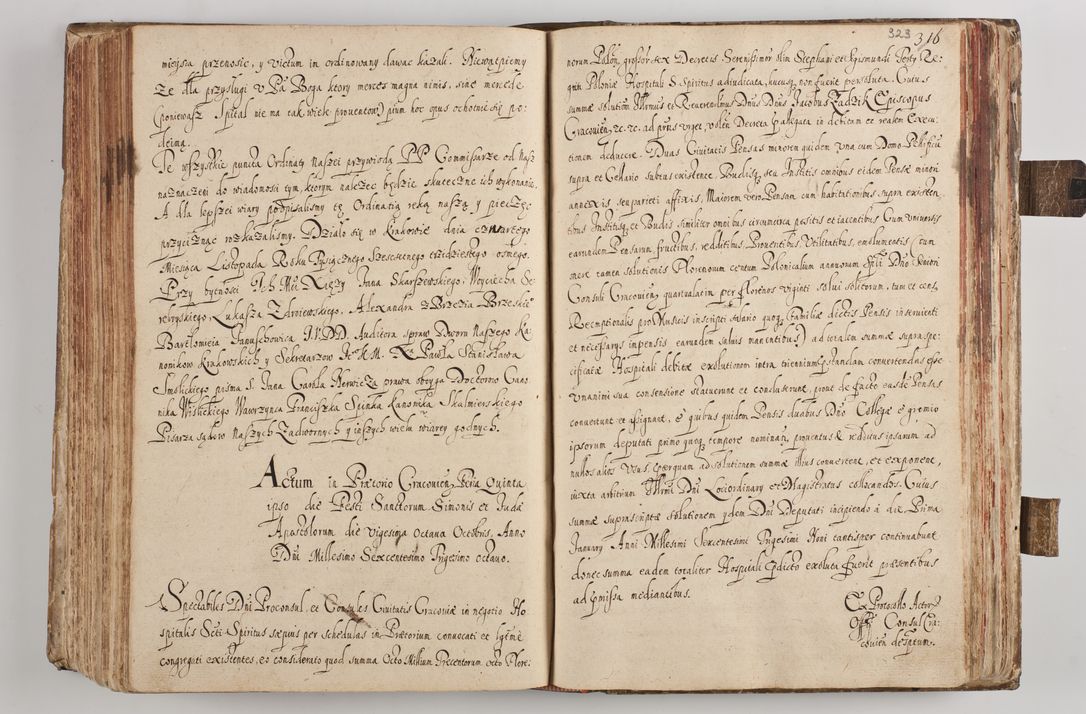 miejsca przenosić, y victum in ordinowany dawać kazali. Niewątpiemy
że dla przysługi v Pa Boga ktory merces magna nimis, sine mercede
(ponieważ Spital nie ma tak wiele prouentow) pium hoc opus ochotnie się po:
deima.
Te wszystkie puncta Ordinaty Naszei przywiodą PP Commissarze od Nasz
naznaczeni do wiadomosci tym, ktorym należeć będzie skuteczne ich wykonanie.
A dla lepszei wiary podpisalismy tę Ordinatią ręką naszą y pieczęć
przycisnąć rozkazalismy. Działo się w Krakowie dnia czwartego
Miesiąca Listopada Roku Tysiącnego Szescsetnego trzidziestego osmego.
Przy bytnosci Ich Mci Xięży Jana Skarszewskiego, Woyciecha Se-
rebryskiego Łukasza Zdroiewskiego, Alexandra z Brzezia Brzeskie°
Bartłomieia Januschowica I.V.DD. Auditora spraw Dworu Naszego Ka-
nonikow Krakowskich y Sekretarzow Je° K.M. Xa Pawła Stanisława
Smolickiego pisma S. Jana Carola Herwicza prawa oboyga Doctorow Cano-
nika Wislickiego Wawrzynca Franciszka Spinka Kanonika Skalmierskiego
Pisarza sądow Naszych Zadwornych y inszych wielu wiary godnych.
Actum in Prætorio Cracouien, Feria Quinta
ipso die Festi Sanctorum Simonis et Judæ
Apostolorum die vigesima octaua Octobris, Anno
Dni Millesimo Sexcentesimo Trigesimo octauo.
Spectabiles Dni Proconsul et Consules Ciuitatis Cracouiæ in negotio Ho-
spitalis Scti Spiritus sæpius per schedulas in Prætorium conuocati et lgitme
congregati existentes, eo considerato quod summa Octo Millium Trecentorum octo Flore:
323 316
norum Polon, grossor sex Decretis Serenissimor olim Stephani et Sigismundi Tertij Re-
gum Poloniæ Hospitali S Spiritus adiudicata, hucusq, non fuerit persoluta. Cuius
summæ solutium Illrmus et Reuerendmus Dnus Dnus Jacobus Zadzik Episcopus
Cracouien, &c. &c. ad præsens vrget, volen Decreta præallegata in debitam et realem Execu-
tionem deducere. Duas Ciuitatis Pensas minorem quidem vna cum Domo Pellificu
supra et Cellario subtus existente, Budisq, seu Institis omnibus eidem Pensæ minori
annexis seu parieti affixis, Maiorem vero Pensam cum habitationibus supra existen-
tibus Institisq, et Boudis similiter omnibus circumcirca positis et iacentibus Cum vniuersis
earundem Pensarum, fructibus, redditibus, Prouentibus, Vtilitatibus, emolumentis (tum
onere tamen solutionis Florenorum centum Polonicalium annuorum Spli Dno
Consuli Cracouien, quartualatim per florenos viginti solui solitorum, tum et cens,
Reemptionalis pro Musicis inscripti salario quoq, Familiæ dictis Pensis inseruienti
et necessarijs impensis earundem saluis manentibus) ad totalem summæ supraspe-
cificatæ Hospitali debitæ exolutionem intra triennium conuertendas esse
vnanimi sua consensione statuerunt et concluserunt, prout de facto easdem Pensas
conuertunt et assignant, e quibus quidem Pensis duabus Dno Collegæ e gremio
ipsorum deputati primo quoq, tempore nominan, prouentus & redditus ipsarum ad
nullos alios vsus, præterquam ad solutionem summæ illius conuertent, et exponent,
iuxta arbitrium Illrmi Dni Lociordinary et Magistratus collocandos. Cuius
summæ suprascriptæ solutionem ydem Dni Deputati incipiendo á die Prima
January Anni Millesimi Sexcentesimi Trigesimi Noni tantisper continuabunt
donec summa eadem totaliter Hospitali prædicto exoluta fuerit præsentibus
ad præmissa mediantibus.
Ex Protocollo Actor
Offy Consul Cra-
couien desptum.